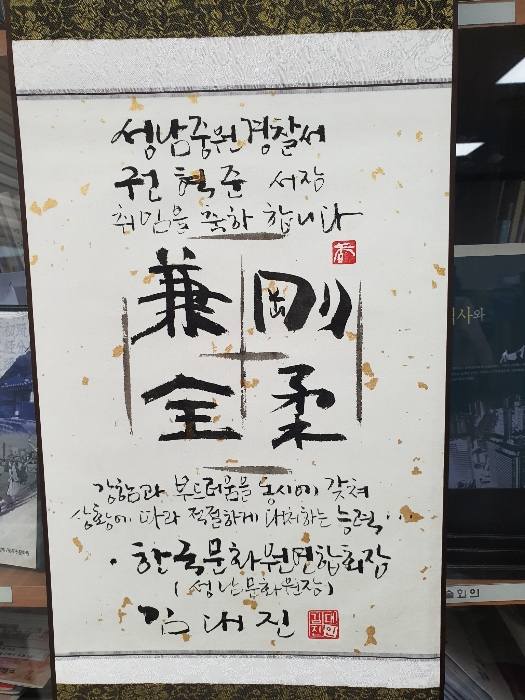 성남중원경찰서
권혁준 서장
취임을 축하 합니다
兼 剛
全 柔
강함과 부드러움을 동시에 갖춰
상황에 따라 적절하게 대처하는 능력...
·한국문화원연합회장
(성남문화원장)
김대진